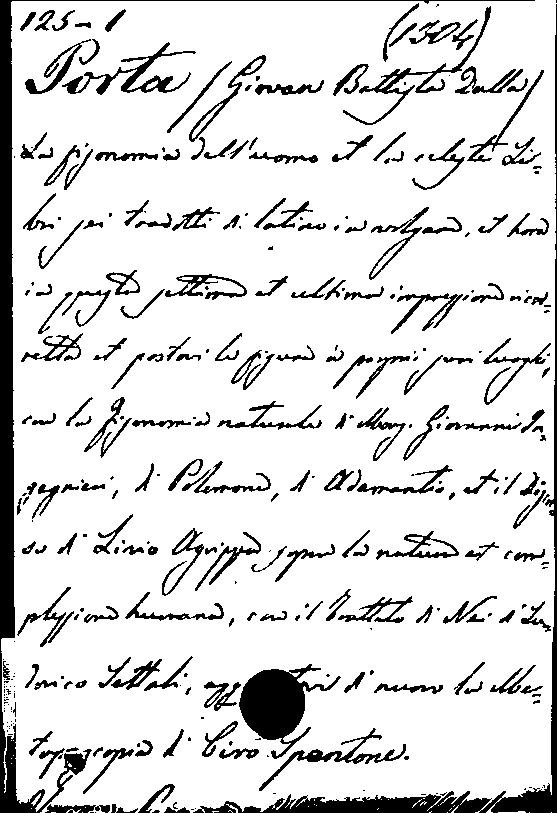 125-1 (1304)
Porta (Giovan Battista Dalla)
La fisonomia dell'uomo et la celeste Li=
bri sei tradotti di latino in volgare, et hora
in questa settima et ultima impressione ricor=
retta et postovi le figure a proprii suoi luoghi,
con la Fisonomia naturale di Mons. Giovanni In=
gegnieri, di Polemone, di Adamantio, et il discor=
so di Livio Agrippa sopra la natura et com=
plessione humana, con il Trattato di Nei di Lu=
dovico Settali, di nuovo la Me=
toposcopia di Ciro Spontone.